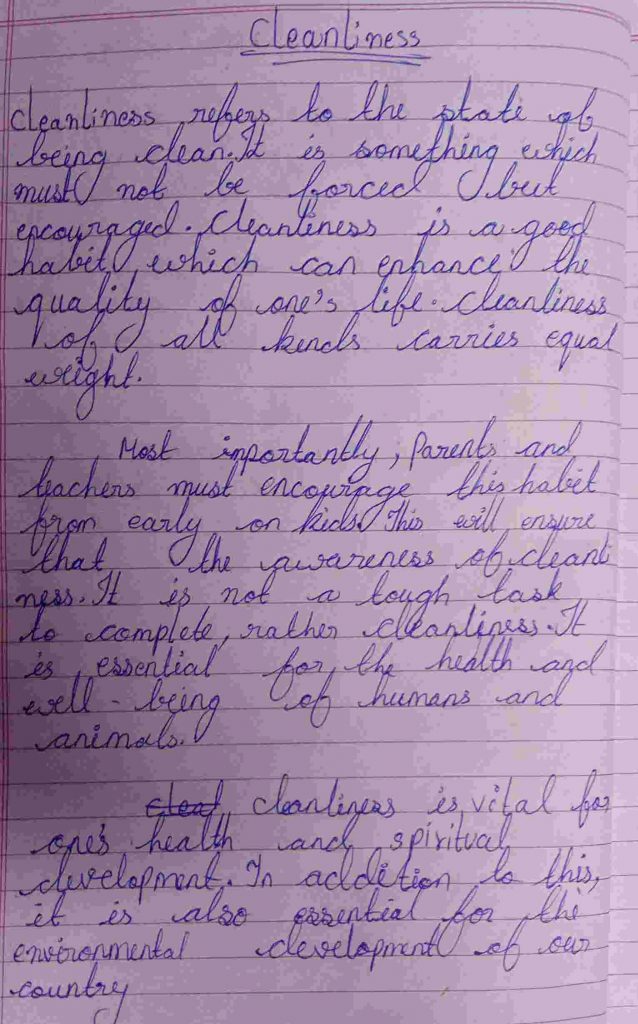 Cleanliness
Cleanliness refers to the state of
being clean. It is something which
must not be forced but
encouraged. Cleanliness is a good
habit which can enhance the
quality of one's life. Cleanliness
of all kinds carries equal
weight.
Most importantly, Parents and
teachers must encourage this habit
from early on kids. This will ensure
that the awareness of cleanli
ness. It is not a tough task
to complete, rather cleanliness. It
is essential for the health and
well-being of humans and
animals.
cleanliness is vital for
one's health and spiritual
development. In addition to this,
it is also essential for the
environmental development of our
country